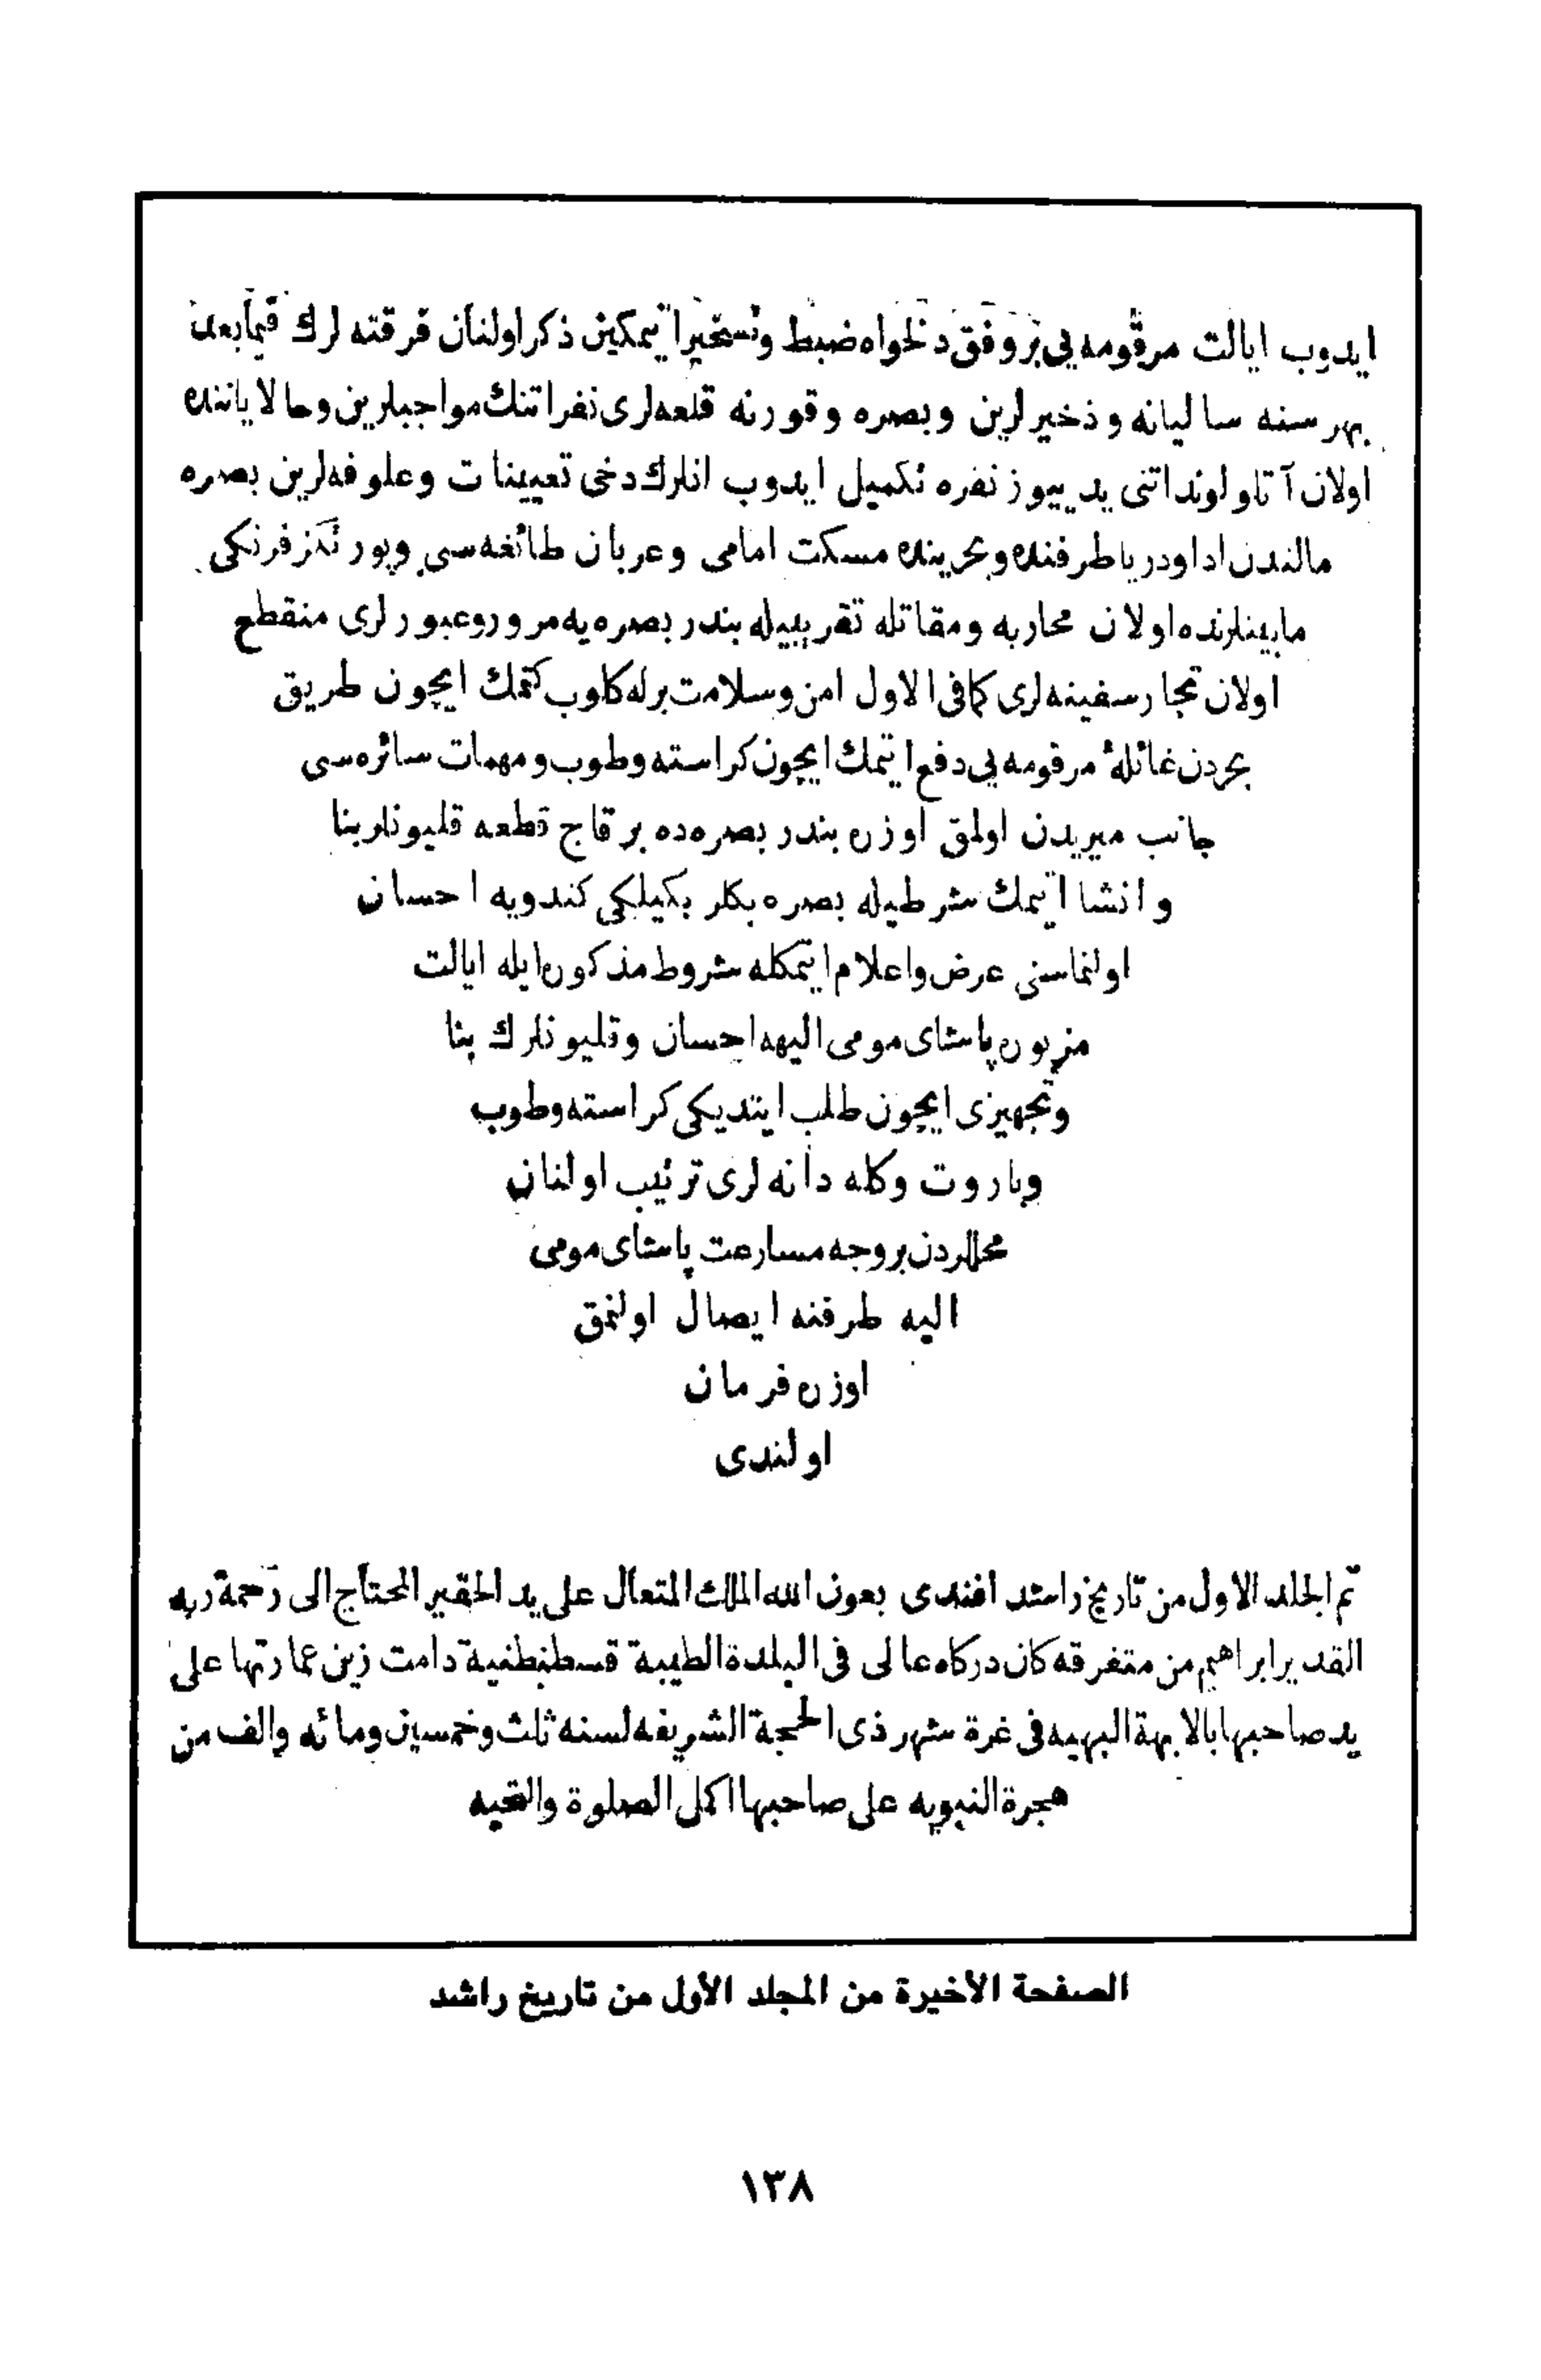 ايدوب ايالت مرقومه يى بر وفق دلخواه ضبط وتسخير ايتمكين ذكر اولنان فرقته لرك فيمابعد
بهر سنه ساليانه و ذخيرلرين وبصره وقورنه قلعه لرى نفراتنك مواجبلرين وحالا ياننده
اولان آتلو لونداتنى يدييوز نفره تكميل ايدوب انلرك دخى تعيينات وعلوفه لرين بصره
مالندن ادا ودريا طرفنده وبحرينده مسكت امامى وعربان طائفه سى وپورتكز فرنكى
مابينلرنده اولان محاربه ومقاتله تقريبيله بندر بصره يه مرور وعبورلرى منقطع
اولان تجار سفينه لرى كمافى الاول امن وسلامت برله كلوب كتمك ايچون طريق
بحردن غائلۀ مرقومه يى دفع ايتمك ايچون كراسته وطوب ومهمات سائره سى
جانب ميريدن اولمق اوزره بندر بصره ده بر قاج قطعه قليونلر بنا
وانشا ايتمك شرطيله بصره بكلر بكيلكى كندويه احسان
اولنماسنى عرض واعلام ايتمكله شروط مذكوره ايله ايالت
مزبوره پاشاى مومى اليهه احسان وقليونلرك بنا
وتجهيزى ايچون طلب ايتديكى كراسته وطوب
وباروت وكله دانه لرى ترتيب اولنان
محللردن بر وجه مسارعت پاشاى مومى
اليه طرفنه ايصال اولنمق
اوزره فرمان
اولندى
تم الجلد الاول من تاريخ راشد افندى بعون الله الملك المتعال على يد الحقير المحتاج الى رحمة ربه
القدير ابراهيم من متفرقه كان دركاه عالى فى البلدة الطيبة قسطنطنية دامت زين عمارتها على
يد صاحبها بالابهة البهيه فى غرة شهر ذى الحجة الشريفه لسنه ثلث وخمسين ومائه والف من
هجرة النبويه على صاحبها اكمل الصلوة والتحيه
الصفحة الأخيرة من المجلد الأول من تاريخ راشد
١٣٨